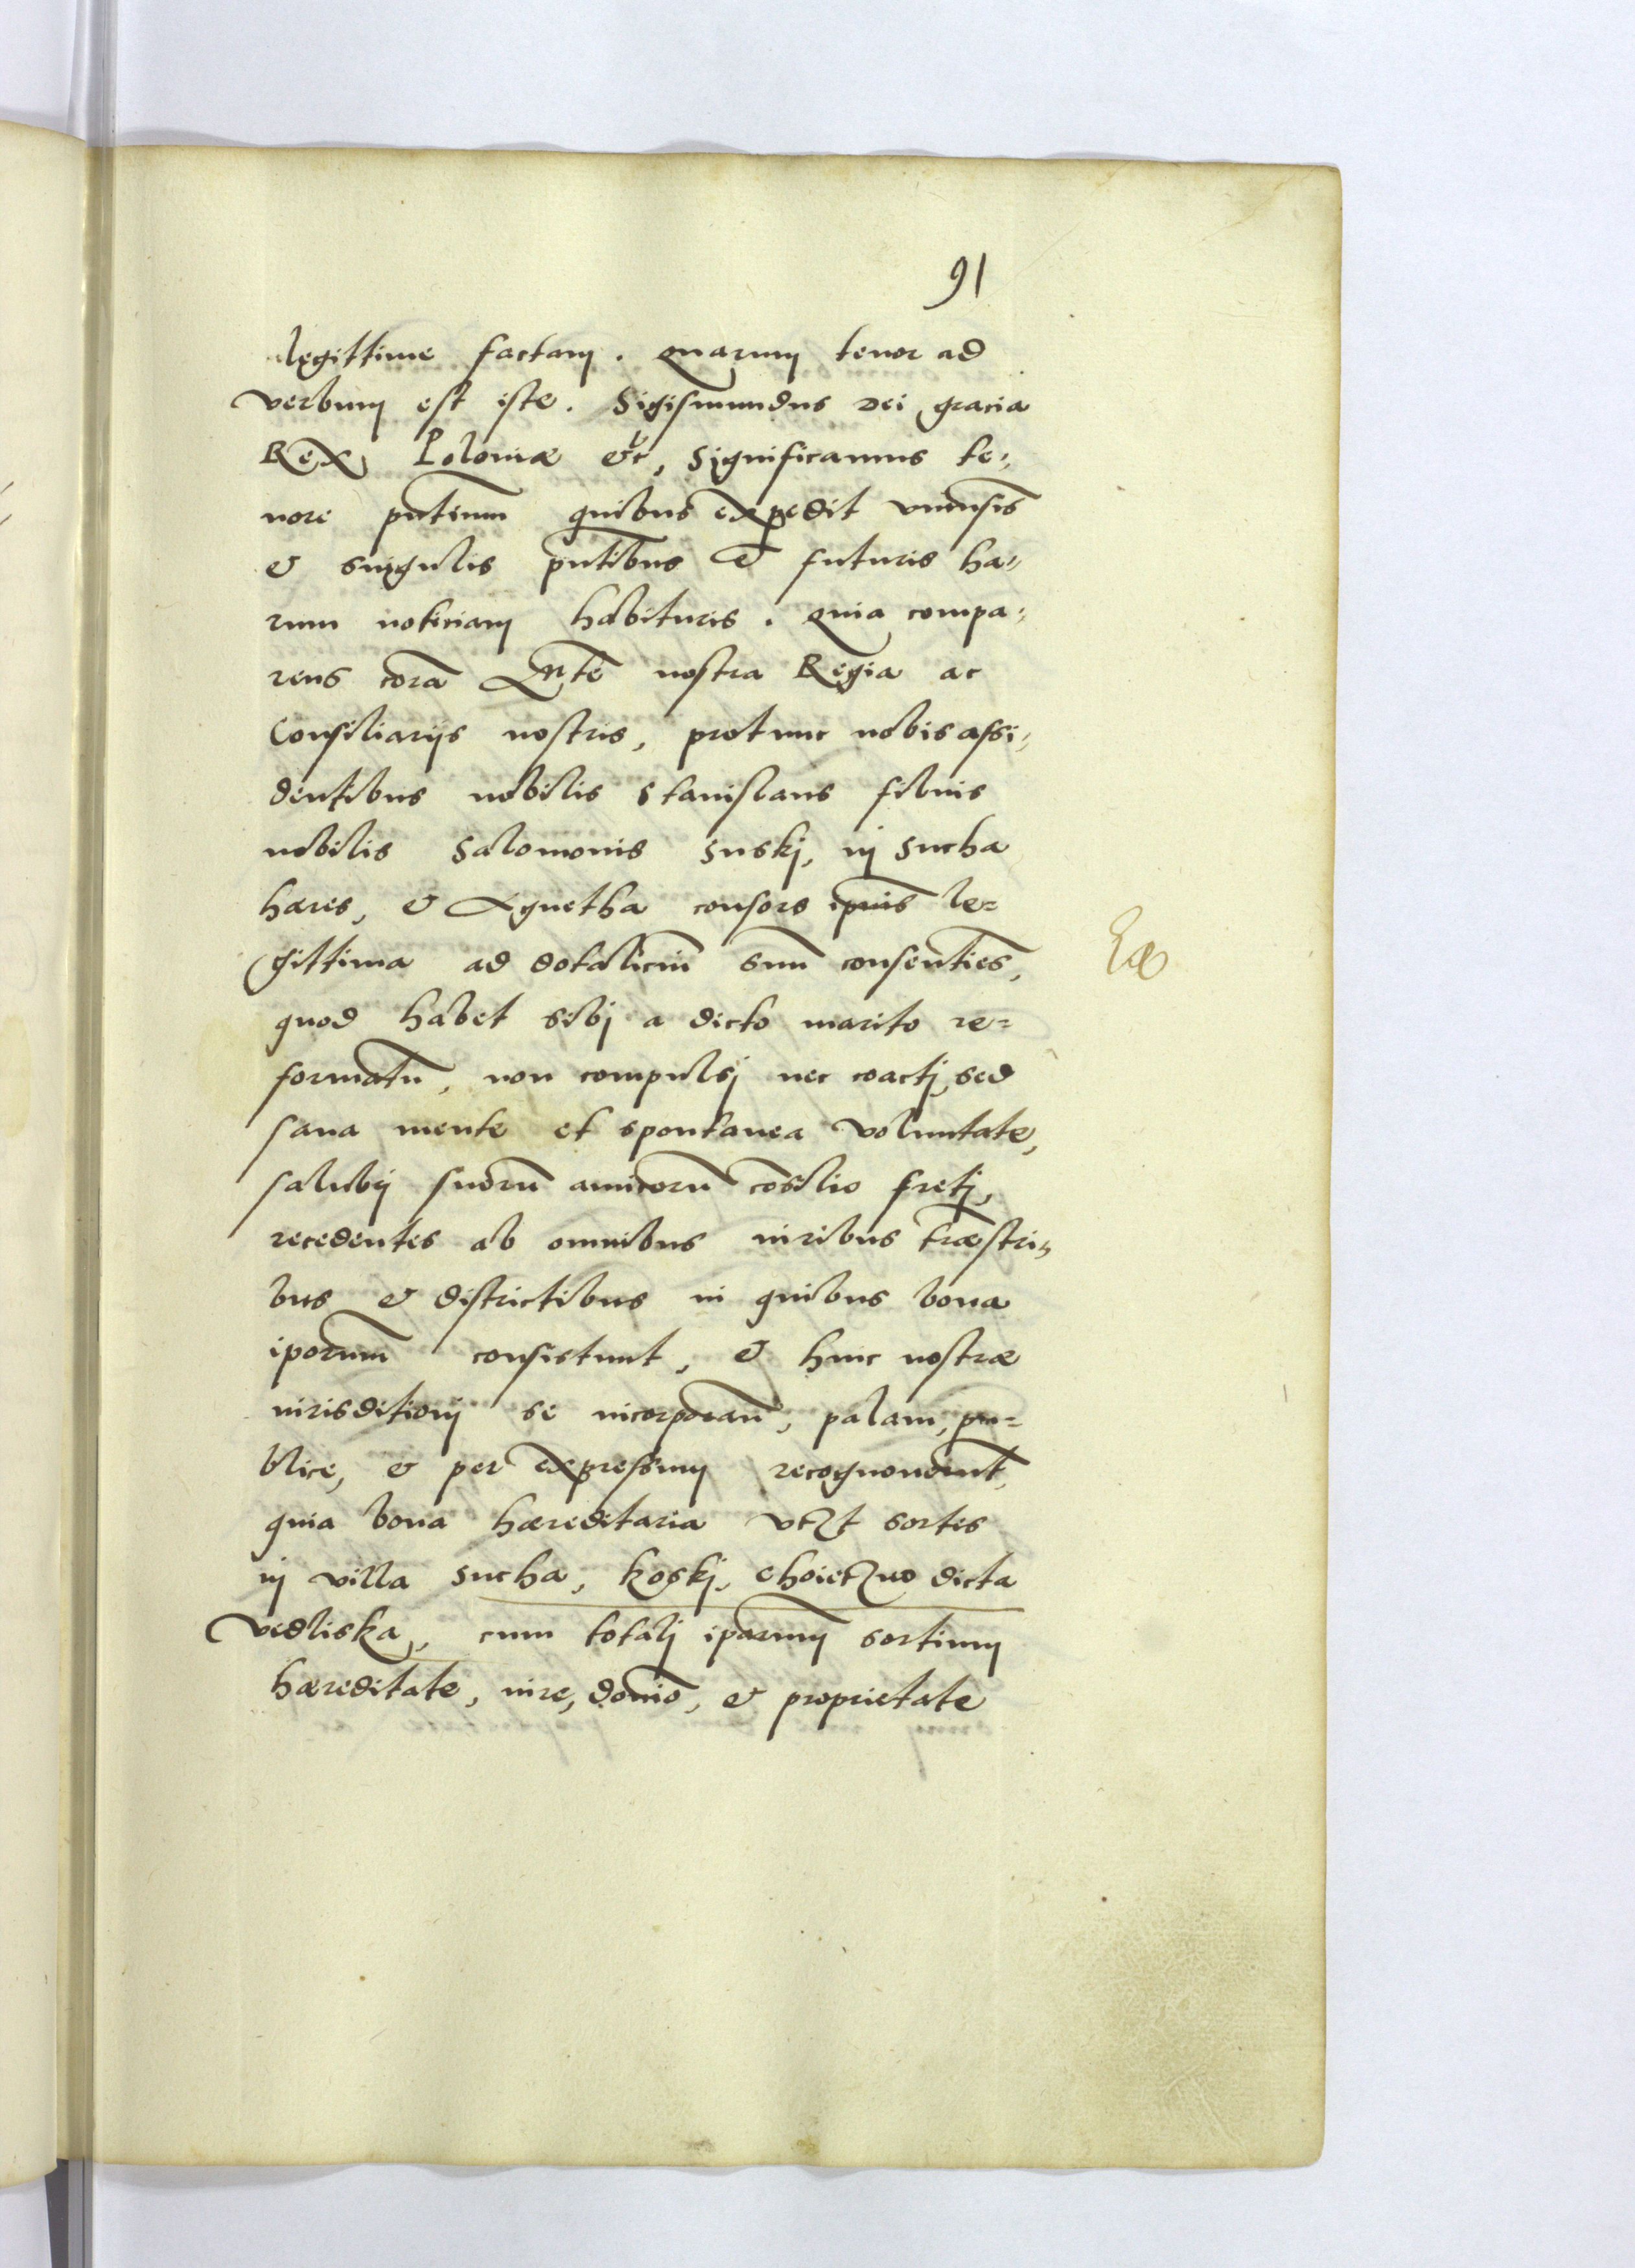 91
legittime factam. Quarum tenor ad
verbum est iste. Sigismundus Dei gracia
Rex Poloniæ etc, Significamus te,,
nore pñtium quibus expedit vniũsis
& singulis pñtibus & futuris ha,,
rum noticiam habituris. Quia compa,,
rens corã Mte nostra Regia ac
Consiliarijs nostris, protunc nobis assi,,
dentibus nobilis Stanislaus filius
nobilis Salomonis Suskj, in Sucha
hæres, & Agnetha consors ipius le=
gittima ad dotaliciũ suũ consenties,
quod habet sibj a dicto marito re=
formatũ, non compulsj nec coactj, sed
sana mente et spontanea voluntate,
salubrj suorũ amicorũ cõsilio fretj,
recedentes ab omnibus iuribus træstri,,
bus & districtibus in quibus bona
iporum consistunt, & huic nostræ
iurisditionj se incorporan, palam, pu=
blice, & per expressum recognouerũt,
quia bona hæreditaria vtzt sortes
in villa Sucha, koskj, choietzno dicta
vedliska, cum totalj iparum sortium
hæreditate, iure, domio, & proprietate